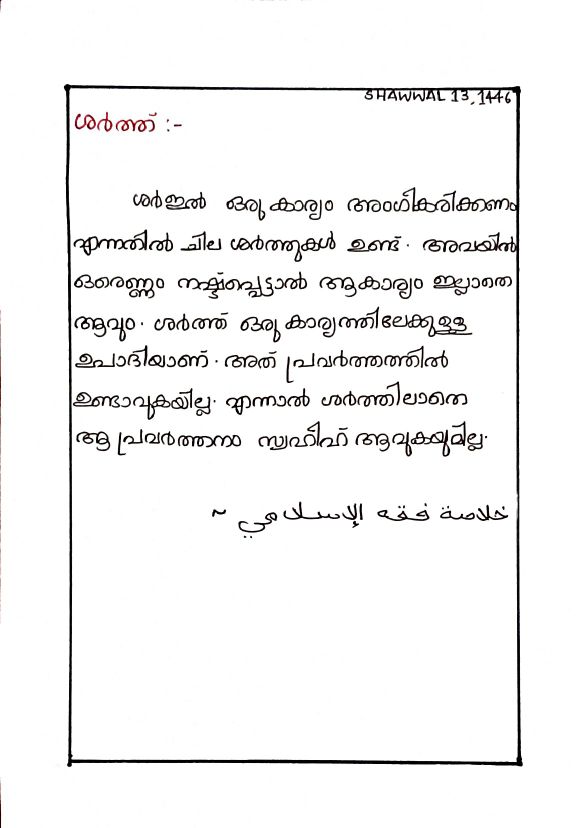 SHAWWAL 13, 1446
ശർത്ത് :-
ശർഇൽ ഒരു കാര്യം അംഗീകരിക്കണം
എന്നതിൽ ചില ശർത്തുകൾ ഉണ്ട്. അവയിൽ
ഒരെണ്ണം നഷ്ടപ്പെട്ടാൽ ആകാര്യം ഇല്ലാതെ
ആവും. ശർത്ത് ഒരു കാര്യത്തിലേക്കുള്ള
ഉപാദിയാണ്. അത് പ്രവർത്തത്തിൽ
ഉണ്ടാവുകയില്ല. എന്നാൽ ശർത്തിലാതെ
ആ പ്രവർത്തനം സ്വഹീഹ് ആവുകയുമില്ല.
خلاصة فقه الإسلامي ~